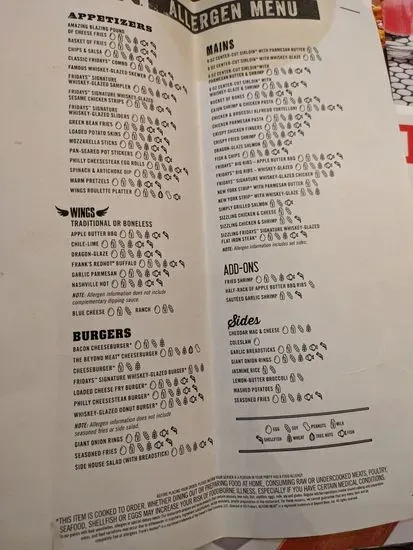 ALLERGEN MENU
APPETIZERS
AMAZING BLAZING POUND
OF CHEESE FRIES
BASKET OF FRIES
CHIPS & SALSA
CLASSIC FRIDAYS® COMBO
FAMOUS WHISKEY-GLAZED SKEWER
FRIDAYS® SIGNATURE
WHISKEY-GLAZED SAMPLER
FRIDAYS® SIGNATURE WHISKEY-GLAZED
SESAME CHICKEN STRIPS
FRIDAYS® SIGNATURE
WHISKEY-GLAZED SLIDERS
GREEN BEAN FRIES
LOADED POTATO SKINS
MOZZARELLA STICKS
PAN-SEARED POT STICKERS
PHILLY CHEESESTEAK EGG ROLLS
SPINACH & ARTICHOKE DIP
WARM PRETZELS
WINGS ROULETTE PLATTER
WINGS
TRADITIONAL OR BONELESS
APPLE BUTTER BBQ
CHILE-LIME
DRAGON-GLAZE
FRANK'S REDHOT® BUFFALO
GARLIC PARMESAN
NASHVILLE HOT
NOTE: Allergen information does not include
complementary dipping sauce.
BLUE CHEESE RANCH
BURGERS
BACON CHEESEBURGER
THE BEYOND MEAT® CHEESEBURGER
CHEESEBURGER
FRIDAYS® SIGNATURE WHISKEY-GLAZED BURGER
LOADED CHEESE FRY BURGER
PHILLY CHEESESTEAK BURGER
WHISKEY-GLAZED DONUT BURGER
NOTE: Allergen information does not include
seasoned fries or side salad.
GIANT ONION RINGS
SEASONED FRIES
SIDE HOUSE SALAD (WITH BREADSTICK)
MAINS
6 OZ CENTER-CUT SIRLOIN* WITH PARMESAN BUTTER
6 OZ CENTER-CUT SIRLOIN* WITH WHISKEY-GLAZE
6 OZ CENTER-CUT SIRLOIN* WITH
PARMESAN BUTTER & SHRIMP
6 OZ CENTER-CUT SIRLOIN* WITH
WHISKEY-GLAZE & SHRIMP
BUCKET OF BONES
CAJUN SHRIMP & CHICKEN PASTA
CHICKEN & BROCCOLI ALFREDO TORTELLONI
CHICKEN PARMESAN PASTA
CRISPY CHICKEN FINGERS
CRISPY FRIED SHRIMP
DRAGON-GLAZE SALMON
FISH & CHIPS
FRIDAYS® BIG RIBS - APPLE BUTTER BBQ
FRIDAYS® BIG RIBS - WHISKEY-GLAZED
FRIDAYS® SIGNATURE WHISKEY-GLAZED CHICKEN
NEW YORK STRIP* WITH PARMESAN BUTTER
NEW YORK STRIP* WITH WHISKEY-GLAZE
SIMPLY GRILLED SALMON
SIZZLING CHICKEN & CHEESE
SIZZLING CHICKEN & SHRIMP
SIZZLING FRIDAYS® SIGNATURE WHISKEY-GLAZED
FLAT IRON STEAK*
NOTE: Allergen information includes set sides.
ADD-ONS
FRIED SHRIMP
HALF-RACK OF APPLE BUTTER BBQ RIBS
SAUTÉED GARLIC SHRIMP
Sides
CHEDDAR MAC & CHEESE
COLESLAW
GARLIC BREADSTICKS
GIANT ONION RINGS
JASMINE RICE
LEMON-BUTTER BROCCOLI
MASHED POTATOES
SEASONED FRIES
EGG SOY PEANUTS MILK
SHELLFISH WHEAT TREE NUTS FISH
BEFORE PLACING YOUR ORDER, PLEASE INFORM YOUR SERVER IF A PERSON IN YOUR PARTY HAS A FOOD ALLERGY.
*THIS ITEM IS COOKED TO ORDER. WHETHER DINING OUT OR PREPARING FOOD AT HOME, CONSUMING RAW OR UNDERCOOKED MEATS, POULTRY,
SEAFOOD, SHELLFISH OR EGGS MAY INCREASE YOUR RISK OF FOODBORNE ILLNESS, ESPECIALLY IF YOU HAVE CERTAIN MEDICAL CONDITIONS.